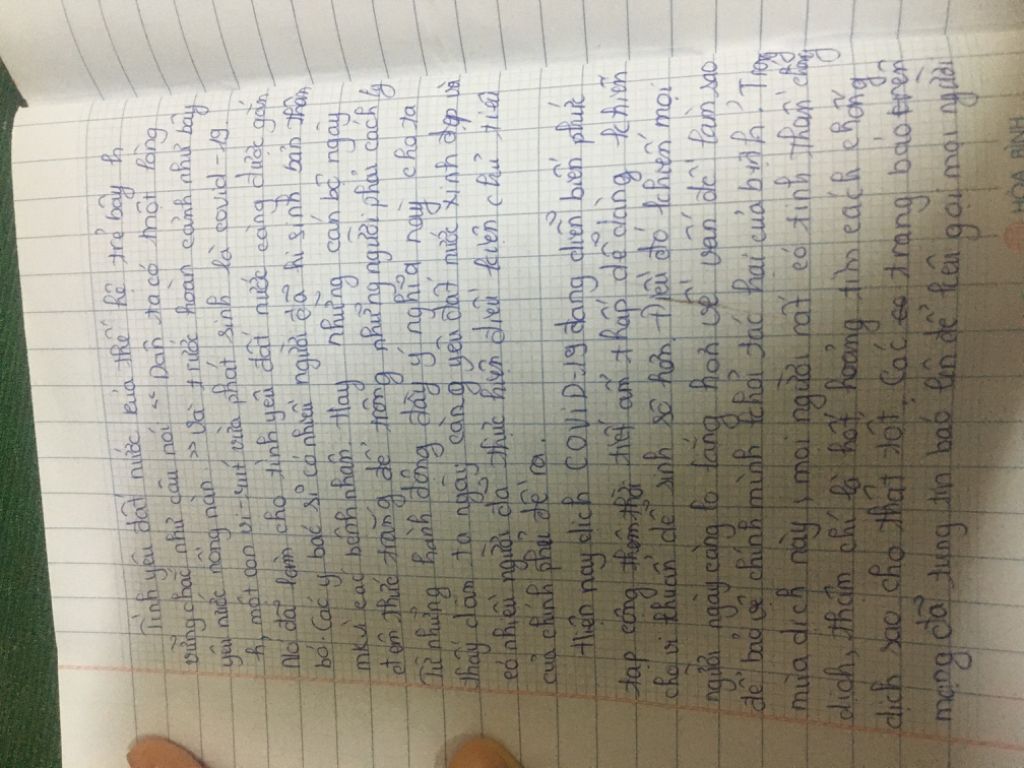 Tình yêu đất nước của thế hệ trẻ bây h
vững chắc như câu nói " Dân ta có một lòng
yêu nước nồng nàn >> Và trước hoàn cảnh như bây
h, một con vi-rút vừa phát sinh là covid-19.
Nó đã làm cho tình yêu đất nước càng được gắn
bó. Các y bác sĩ có nhiều người đã hi sinh bản thân
mk vì các bệnh nhân. Hay những cán bộ ngày
đêm thức trắng để trông những người phải cách ly
Từ những hành động đầy ý nghĩa này cho ta
thấy dân ta ngày càng yêu đất nước xinh đẹp và
có nhiều người đã thực hiện điều kiện chỉ tiêu
của chính phủ đề ra.
Hiện nay dịch COViD.19 đang diễn biến phức
tạp cộng thêm thời tiết ẩm thấp dễ dàng khiến
cho vi khuẩn dễ sinh sô hơn. Điều đó khiến mọi
người ngày càng lo lắng hơn về vấn đề làm sao
để bảo vệ chính mình khỏi tác hại của bệnh. Trong
mùa dịch này, mọi người rất có tinh thần chống
dịch, thậm chí là hốt hoảng tìm cách chống
dịch sao cho thật tốt. Các trang báo trên
mạng đã tung tin báo lên để kêu gọi mọi người
HÒA BÌNH